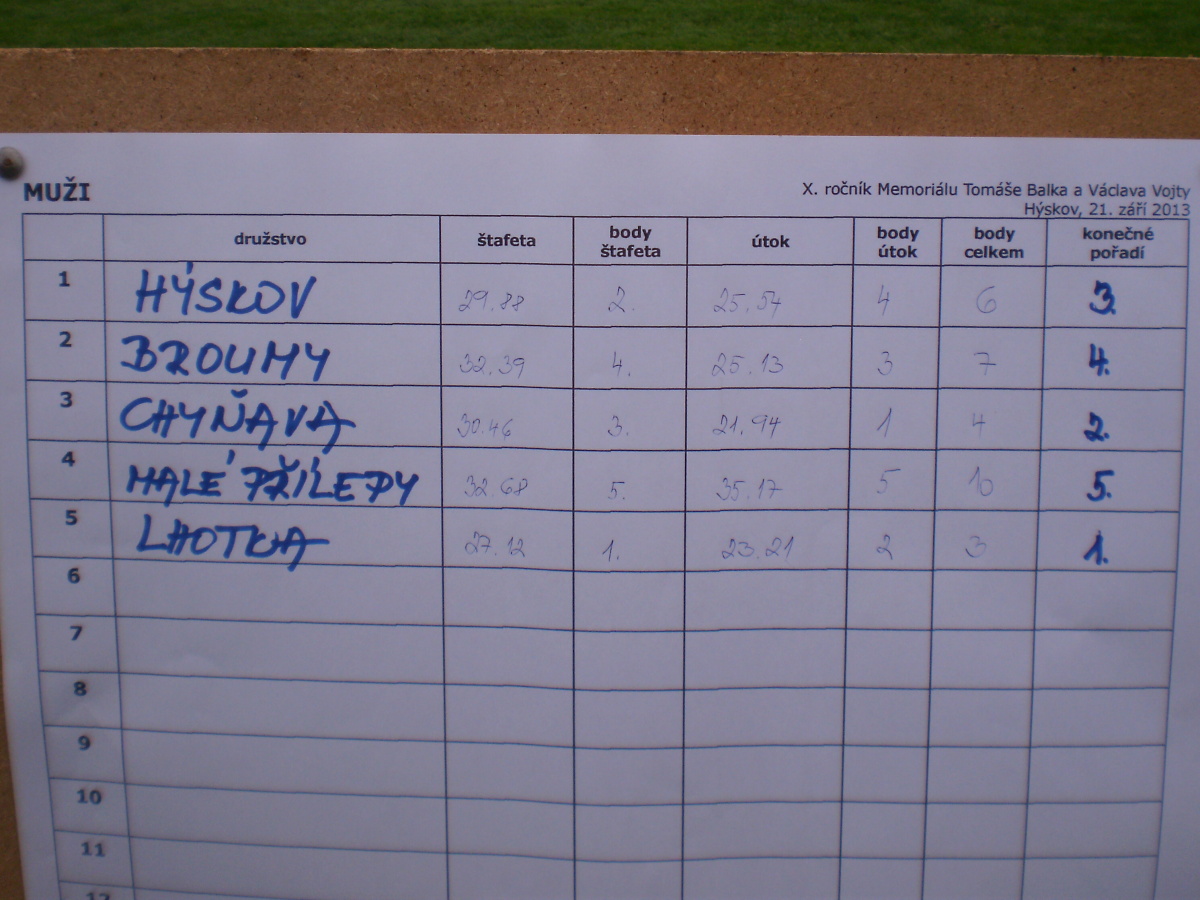 MUŽI
X. ročník Memoriálu Tomáše Balka a Václava Vojty
Hýskov, 21. září 2013
družstvo štafeta body štafeta útok body útok body celkem konečné pořadí
1 HÝSKOV 29.88 2. 25.54 4 6 3.
2 BROUMY 32.39 4. 25.13 3 7 4.
3 CHYŇAVA 30.46 3. 21.94 1 4 2.
4 MALÉ PŘÍLEPY 32.68 5. 35.17 5 10 5.
5 LHOTKA 27.12 1. 23.21 2 3 1.
6
7
8
9
10
11
12